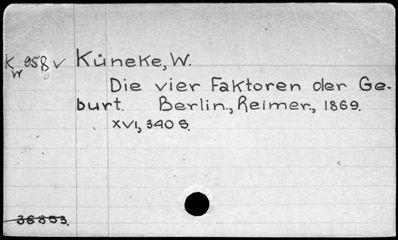 K 958 v Küneke, W.
W
Die vier Faktoren der Ge-
burt. Berlin., Reimer., 1869.
XVI, 340 S.
36853.